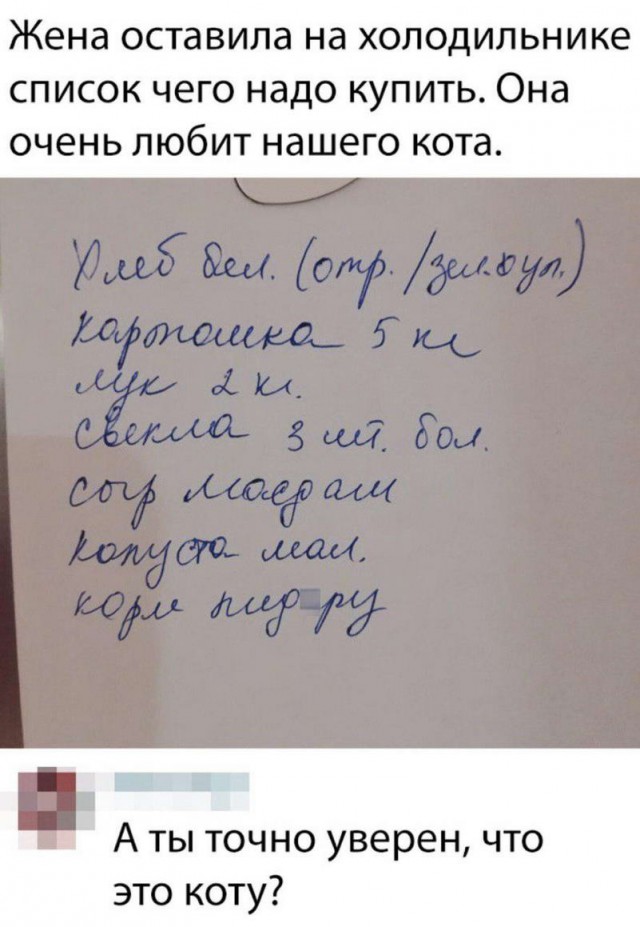 Жена оставила на холодильнике
список чего надо купить. Она
очень любит нашего кота.
Хлеб бел. (отр. /зел.бул.)
картошка 5 кг
лук 2 кг.
свекла 3 шт. бол.
сыр маасдам
капуста мал.
корм
А ты точно уверен, что
это коту?